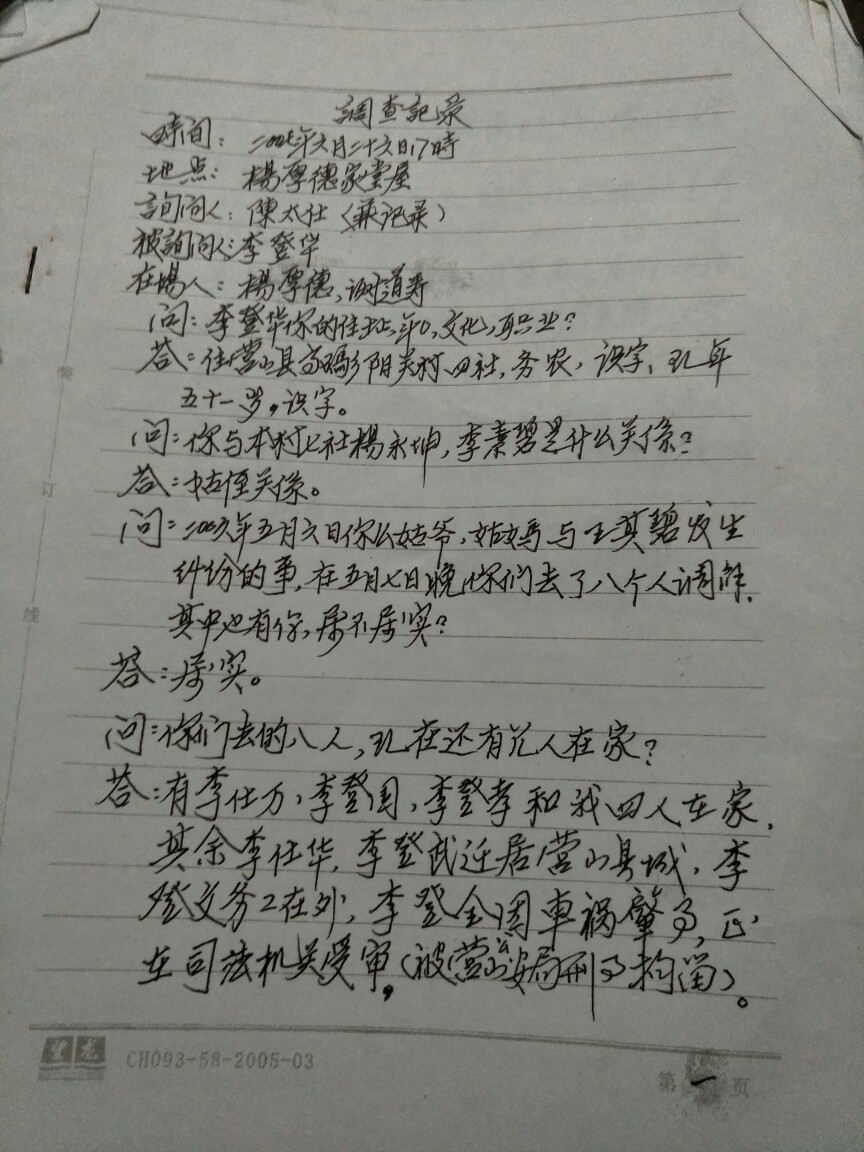 調查記录
時间：二00七年六月二十六日17時
地点：楊厚德家堂屋
詢问人：陳太仕（兼记录）
被詢问人：李登华
在場人：楊厚德，谢道寿
问：李登华你的住址，年令，文化，职业？
答：住营山县高码乡阳关村四社，务农，识字、现年
五十一岁，识字。
问：你与本村七社楊永坤，李素碧是什么关係？
答：姑侄关係。
问：二00六年五月六日你么姑爷，姑妈与王其碧发生
纠纷的事，在五月七日晚你们去了八个人调解，
其中也有你，属不属实？
答：属实。
问：你们去的八人，现在还有几人在家？
答：有李仕万，李登国，李登孝和我四人在家，
其余李仕华，李登武迁居营山县城，李
登文务工在外，李登全因車祸肇事，正
在司法机关受审，（被营山公安局刑事拘留）。
装
订
线
CH093-58-2005-03
第一页